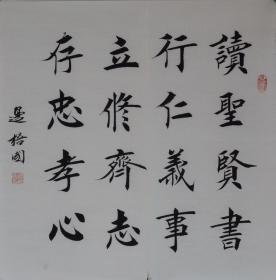 讀聖賢書
行仁義事
立修齊志
存忠孝心